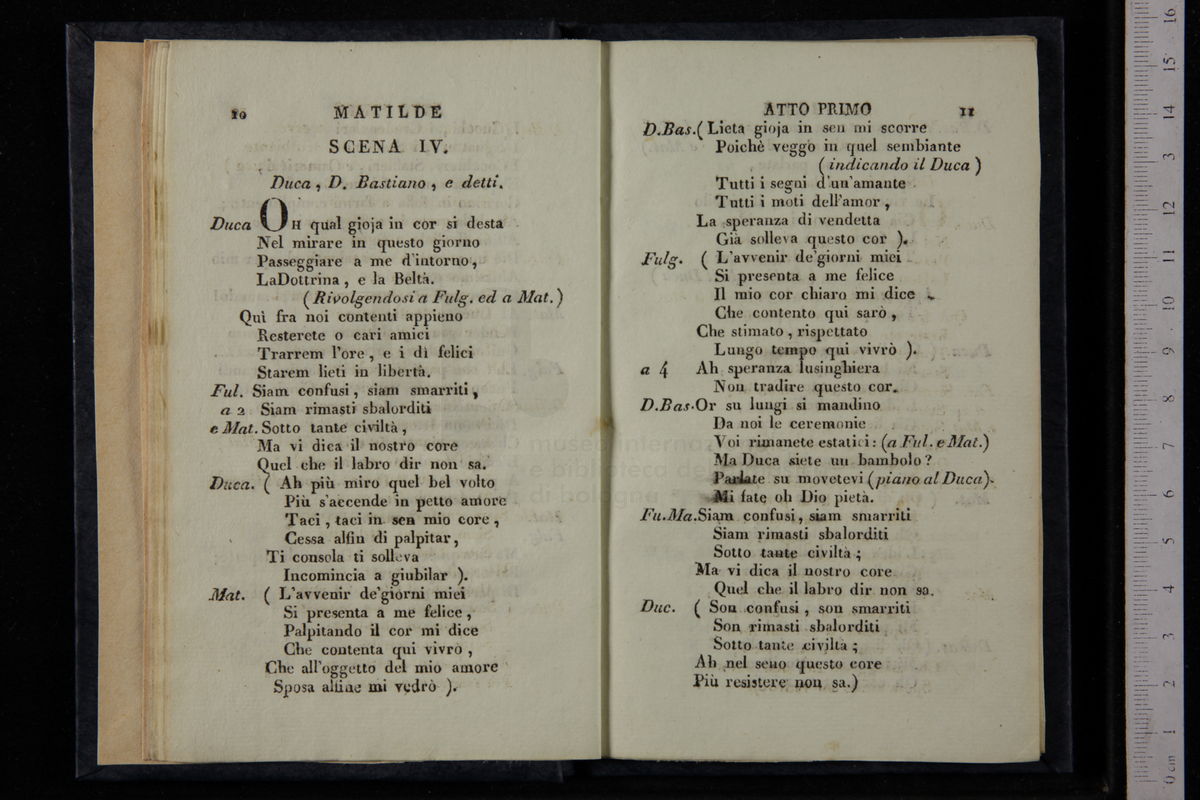 10 MATILDE
SCENA IV.
Duca, D. Bastiano, e detti.
Duca OH qual gioja in cor si desta
Nel mirare in questo giorno
Passeggiare a me d'intorno,
LaDottrina, e la Beltà.
(Rivolgendosi a Fulg. ed a Mat.)
Quì fra noi contenti appieno
Resterete o cari amici
Trarrem l'ore, e i dì felici
Starem lieti in libertà.
Ful. Siam confusi, siam smarriti,
a 2 Siam rimasti sbalorditi
e Mat. Sotto tante civiltà,
Ma vi dica il nostro core
Quel che il labro dir non sa.
Duca. ( Ah più miro quel bel volto
Più s'accende in petto amore
Taci, taci in sen mio core,
Cessa alfin di palpitar,
Ti consola ti solleva
Incomincia a giubilar ).
Mat. ( L'avvenir de'giorni miei
Si presenta a me felice,
Palpitando il cor mi dice
Che contenta qui vivrò,
Che all'oggetto del mio amore
Sposa alfine mi vedrò ).
ATTO PRIMO 11
D.Bas. ( Lieta gioja in sen mi scorre
Poichè veggo in quel sembiante
( indicando il Duca )
Tutti i segni d'un'amante
Tutti i moti dell'amor,
La speranza di vendetta
Già solleva questo cor ).
Fulg. ( L'avvenir de'giorni miei
Si presenta a me felice
Il mio cor chiaro mi dice
Che contento qui sarò,
Che stimato, rispettato
Lungo tempo qui vivrò ).
a 4 Ah speranza lusinghiera
Non tradire questo cor.
D.Bas. Or su lungi si mandino
Da noi le ceremonie
Voi rimanete estatici: (a Ful. e Mat.)
Ma Duca siete un bambolo?
Parlate su movetevi (piano al Duca).
Mi fate oh Dio pietà.
Fu.Ma. Siam confusi, siam smarriti
Siam rimasti sbalorditi
Sotto tante civiltà;
Ma vi dica il nostro core
Quel che il labro dir non sa.
Duc. ( Son confusi, son smarriti
Son rimasti sbalorditi
Sotto tante civiltà;
Ah nel seno questo core
Più resistere non sa.)
museo internaz
e biblioteca de
di bologna
0 cm 1 2 3 4 5 6 7 8 9 10 11 12 13 14 15 16